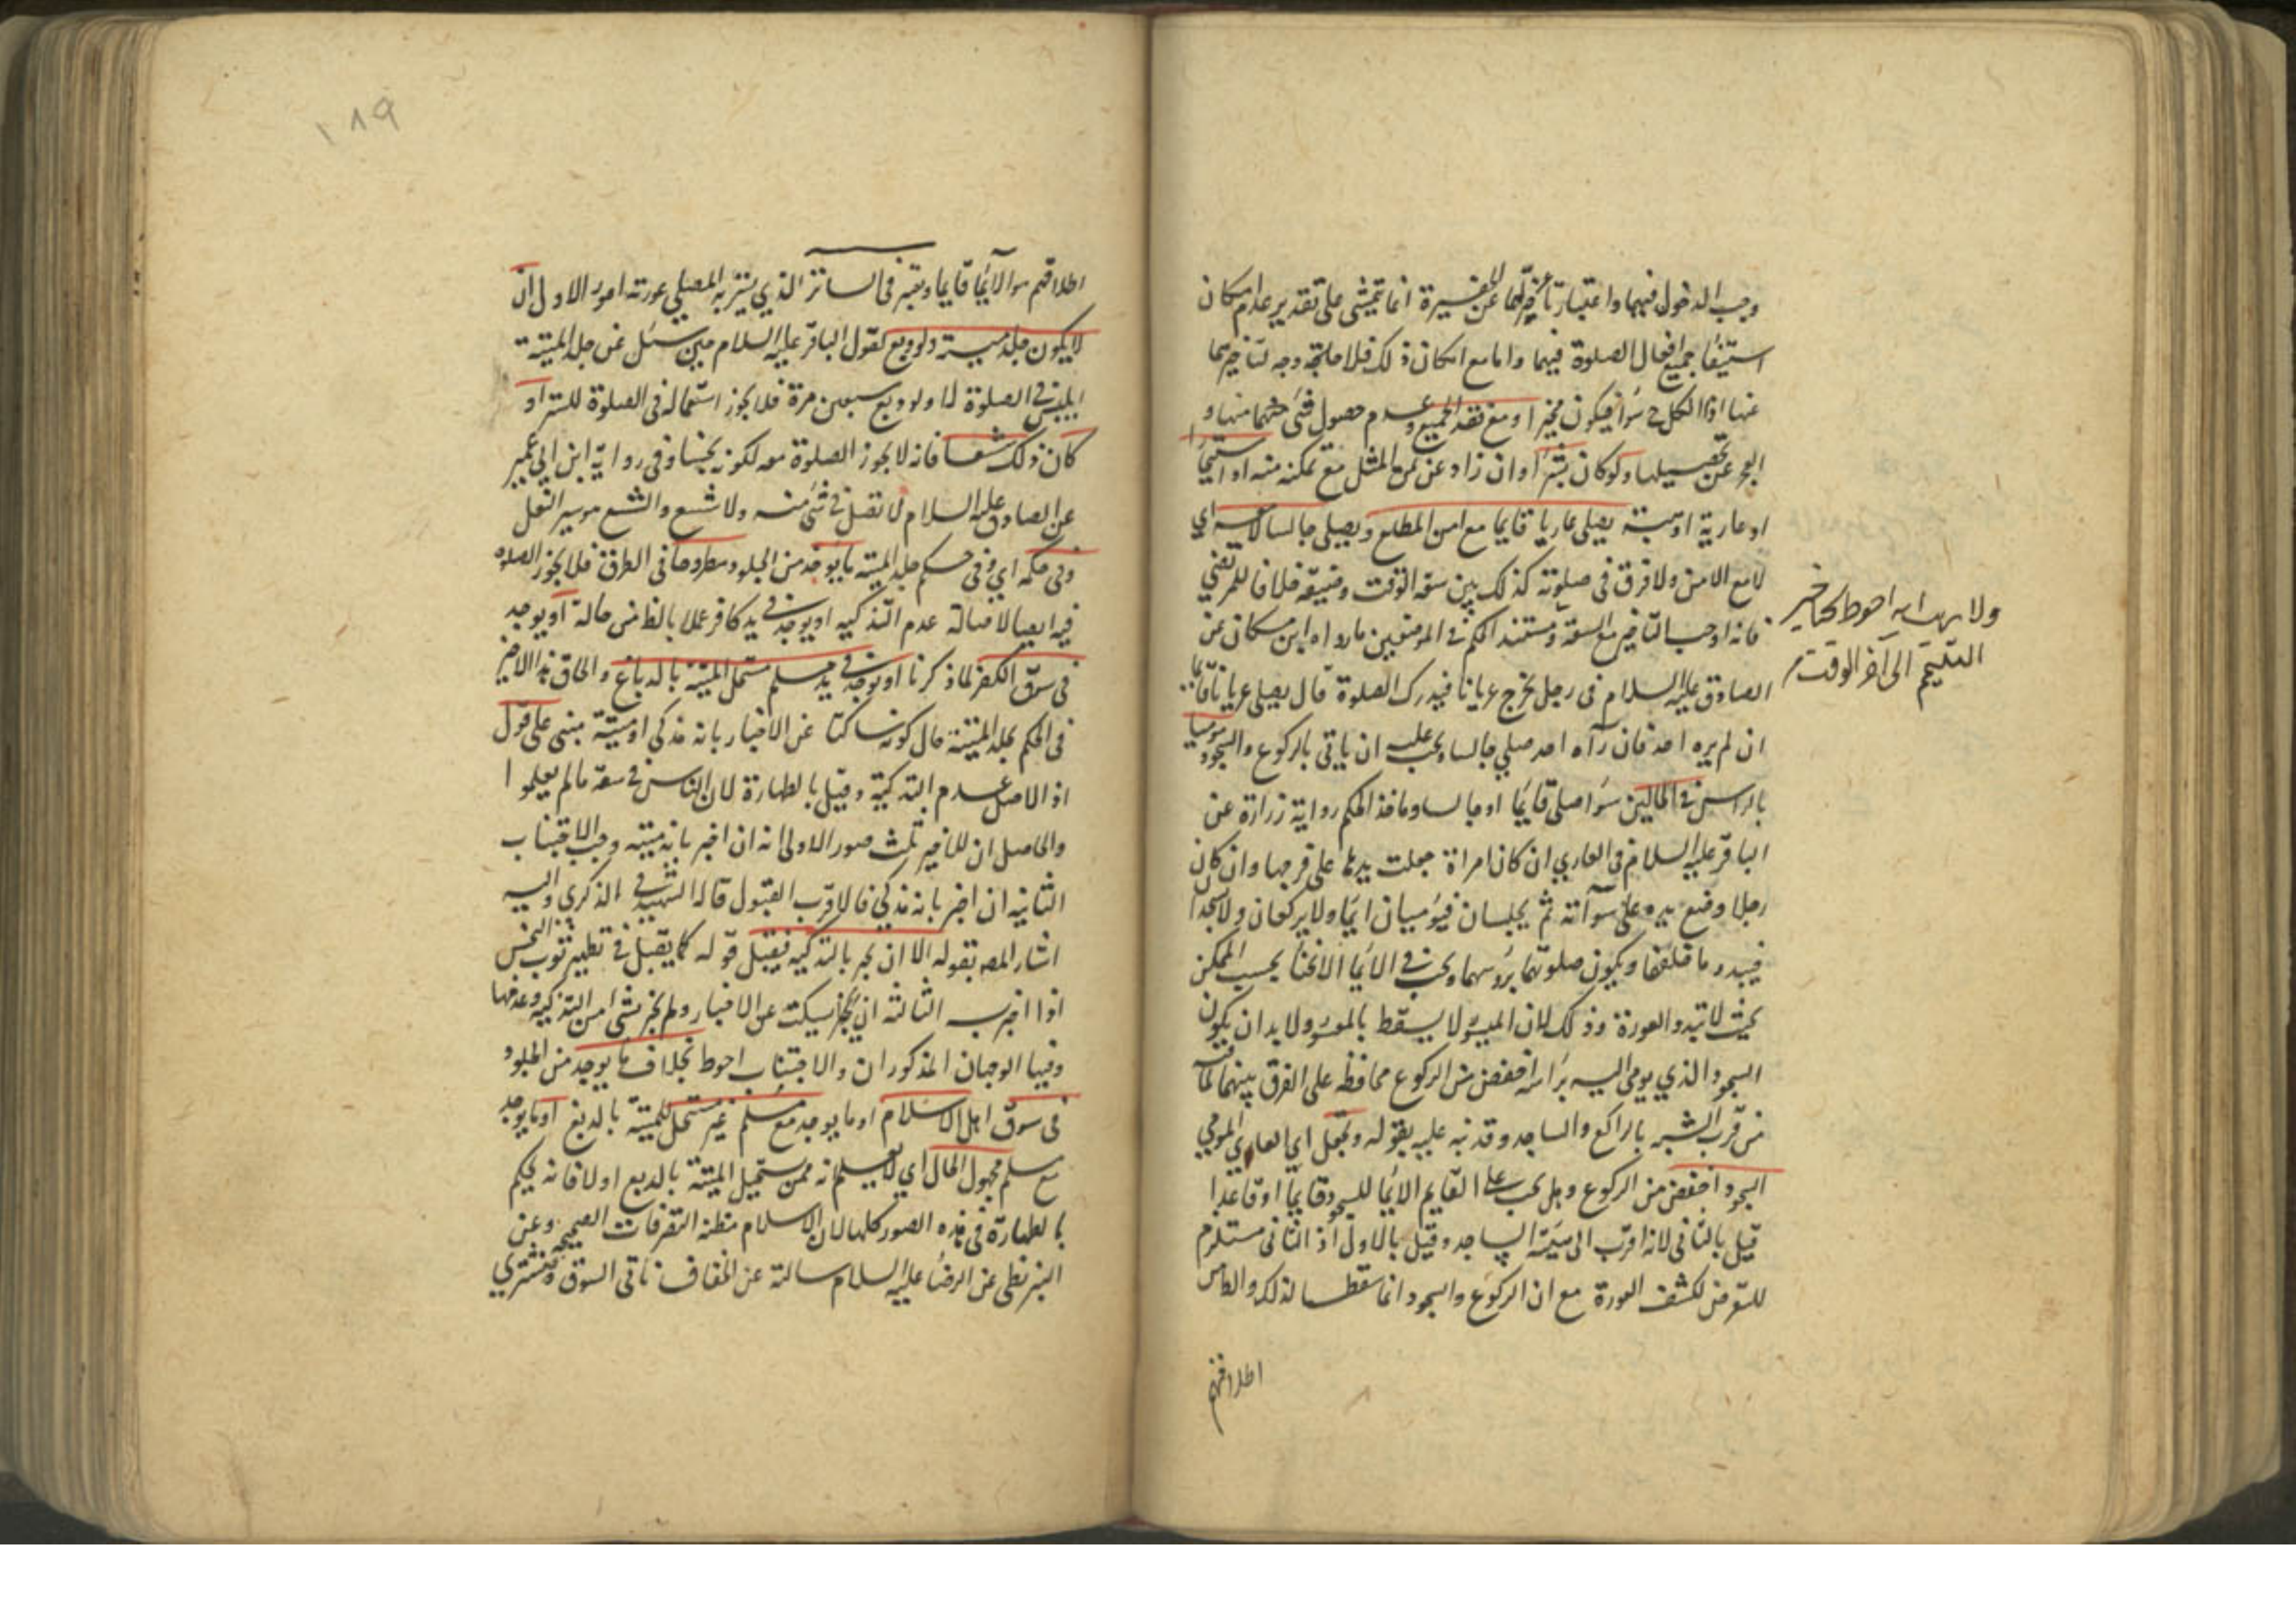 وجب الدخول فيهما واعتبار تأخرهما عن الغيرة انما تتمشى على تقدير عدم امكان
استيفاء جميع افعال الصلوة فيهما واما مع امكان ذلك فلا وجه لتاخيرهما
عنها اذ الكل ح سواء فيكون مخيرا ومع فقد الجميع وعدم حصول شئ منها و
العجز عن تحصيلها ولو كان بشراء وان زاد عن ثمن المثل مع تمكنه منه او استيجار
او عارية او هبة يصلى عاريا قايما مع امن المطلع ويصلى جالسا لا معه اى
لا مع الامن ولا فرق فى صلوته كذلك بين سعة الوقت وضيقه خلافا للمرتضى
فانه اوجب التاخير مع السعة ومستند الحكم فى الموضعين ما رواه ابن مسكان عن
الصادق عليه السلام فى رجل يخرج عريانا فيدرك الصلوة قال يصلى عريانا قايما
ان لم يره احد فان رآه احد صلى جالسا ويجب عليه ان ياتى بالركوع والسجود موميا
بالراس فى الحالين سواء صلى قايما او جالسا وماخذ الحكم رواية زرارة عن
الباقر عليه السلام فى العارى ان كان امراة جعلت يدها على فرجها وان كان
رجلا وضع يده على سوأته ثم يجلسان فيوميان ايماء ولا يركعان ولا يسجدان
فيبدو ما خلفهما ويكون صلوتهما برؤسهما ويجب فى الايماء الانحناء بحسب الممكن
بحيث لا تبدو العورة وذلك لان الميسور لا يسقط بالمعسور ولا بد ان يكون
السجود الذى يومى اليه براسه اخفض من الركوع محافظة على الفرق بينهما
من قرب الشبه بالراكع والساجد وقد نبه عليه بقوله ويجعل اى العارى المومى
السجود اخفض من الركوع وهل يجب على القايم الايماء للسجود قايما او قاعدا
قيل بالثانى لانه اقرب الى هيئة الساجد وقيل بالاول اذ الثانى مستلزم
للتعرض لكشف العورة مع ان الركوع والسجود انما سقطا لذلك والظاهر
اطلاقهم
احوط كتاخير
التيمم الى آخر الوقت
١٨٩
اطلاقهم الايماء قايما ويعتبر فى الساتر الذى يستر به المصلى عورته امور الاول ان
لا يكون جلد ميتة ولو دبغ لقول الباقر عليه السلام حين سئل عن جلد الميتة
ايلبس فى الصلوة لا ولو دبغ سبعين مرة فلا يجوز استعماله فى الصلوة للستر او
كان ذلك شسعا فانه لا يجوز الصلوة معه لكونه نجسا وفى رواية ابن ابى عمير
عن الصادق عليه السلام لا تصل فى شئ منه ولا شسع والشسع هو سير النعل
وفى حكمه اى وفى حكم جلد الميتة ما يوخذ من الجلود مطروحا فى الطرق فلا يجوز الصلوة
فيه ايضا لاصالة عدم التذكيه او يوجد فى يد كافر عملا بالظاهر من حاله او يوجد
فى سوق الكفر لما ذكرنا او يوجد فى يد مسلم مستحل الميتة بالدباغ والحاق هذا الاخير
فى الحكم بجلد الميتة حال كونه ساكتا عن الاخبار بانه مذكى او ميتة مبنى على قول
اذ الاصل عدم التذكية وقيل بالطهارة لان الناس فى سعة ما لم يعلموا
والحاصل ان للاخير ثلث صور الاولى انه ان اخبر بانه ميتة وجب الاجتناب
الثانيه ان اخبر بانه مذكى فالاقرب القبول قاله الشهيد فى الذكرى واليه
اشار المصه بقوله الا ان يخبر بالتذكيه فيقبل قوله كما يقبل فى تطهير ثوبه النجس
اذا اخبر به الثالثة ان يسكت عن الاخبار ولم يخبر بشئ من التذكيه وعدمها
وفيها الوجهان المذكوران والاجتناب احوط بخلاف ما يوجد من الجلود
فى سوق اهل الاسلام او ما يوجد مع مسلم غير مستحل للميتة بالدبغ او ما يوجد
مع مسلم مجهول الحال اى لا يعلم انه ممن يستحيل الميتة بالدبغ اولا فانه يحكم
بالطهارة فى هذه الصور كلها لان الاسلام مظنة التصرفات الصحيحة وعن
البزنطى عن الرضا عليه السلام سالته عن الخفاف ناتى السوق فنشترى